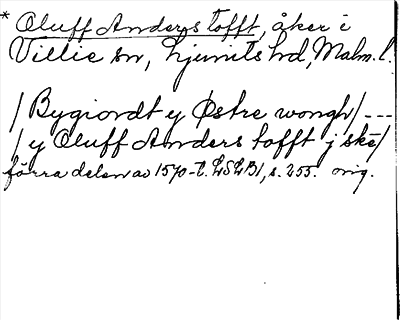 * Oluff Anders tofft, åker i
Villie sn, Ljunits hd, Malm. l.
/Bygiordt y Østre wongh/ ---
/y Oluff Anders tofft j skẽ/
förra delen av 1570-t. LSLB1, s. 255. orig.